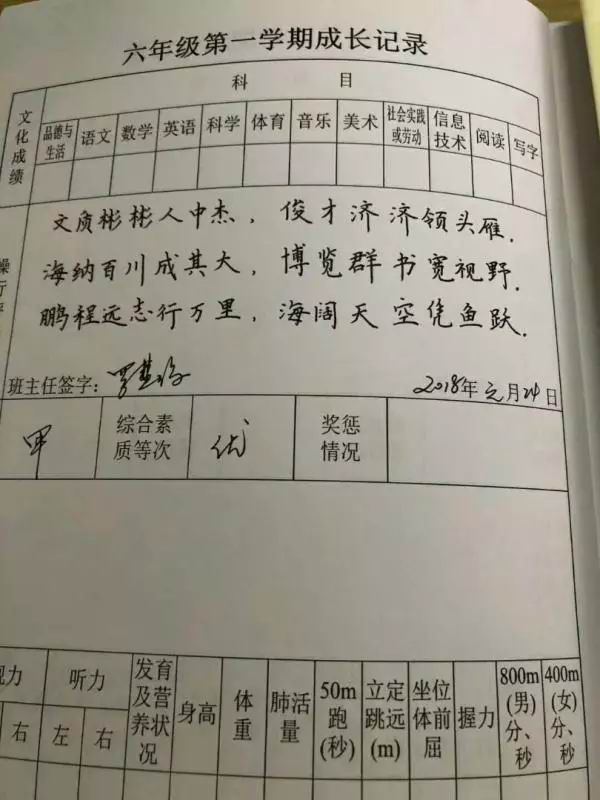 六年级第一学期成长记录
科 目
文化成绩
品德与生活 语文 数学 英语 科学 体育 音乐 美术 社会实践或劳动 信息技术 阅读 写字
文质彬彬人中杰，俊才济济领头雁.
海纳百川成其大，博览群书宽视野.
鹏程远志行万里，海阔天空凭鱼跃.
操行
班主任签字：
2018年元月24日
甲 综合素质等次 优 奖惩情况
视力 听力 发育及营养状况 身高 体重 肺活量 50m跑(秒) 立定跳远(m) 坐位体前屈 握力 800m(男)分、秒 400m(女)分、秒
右 左 右